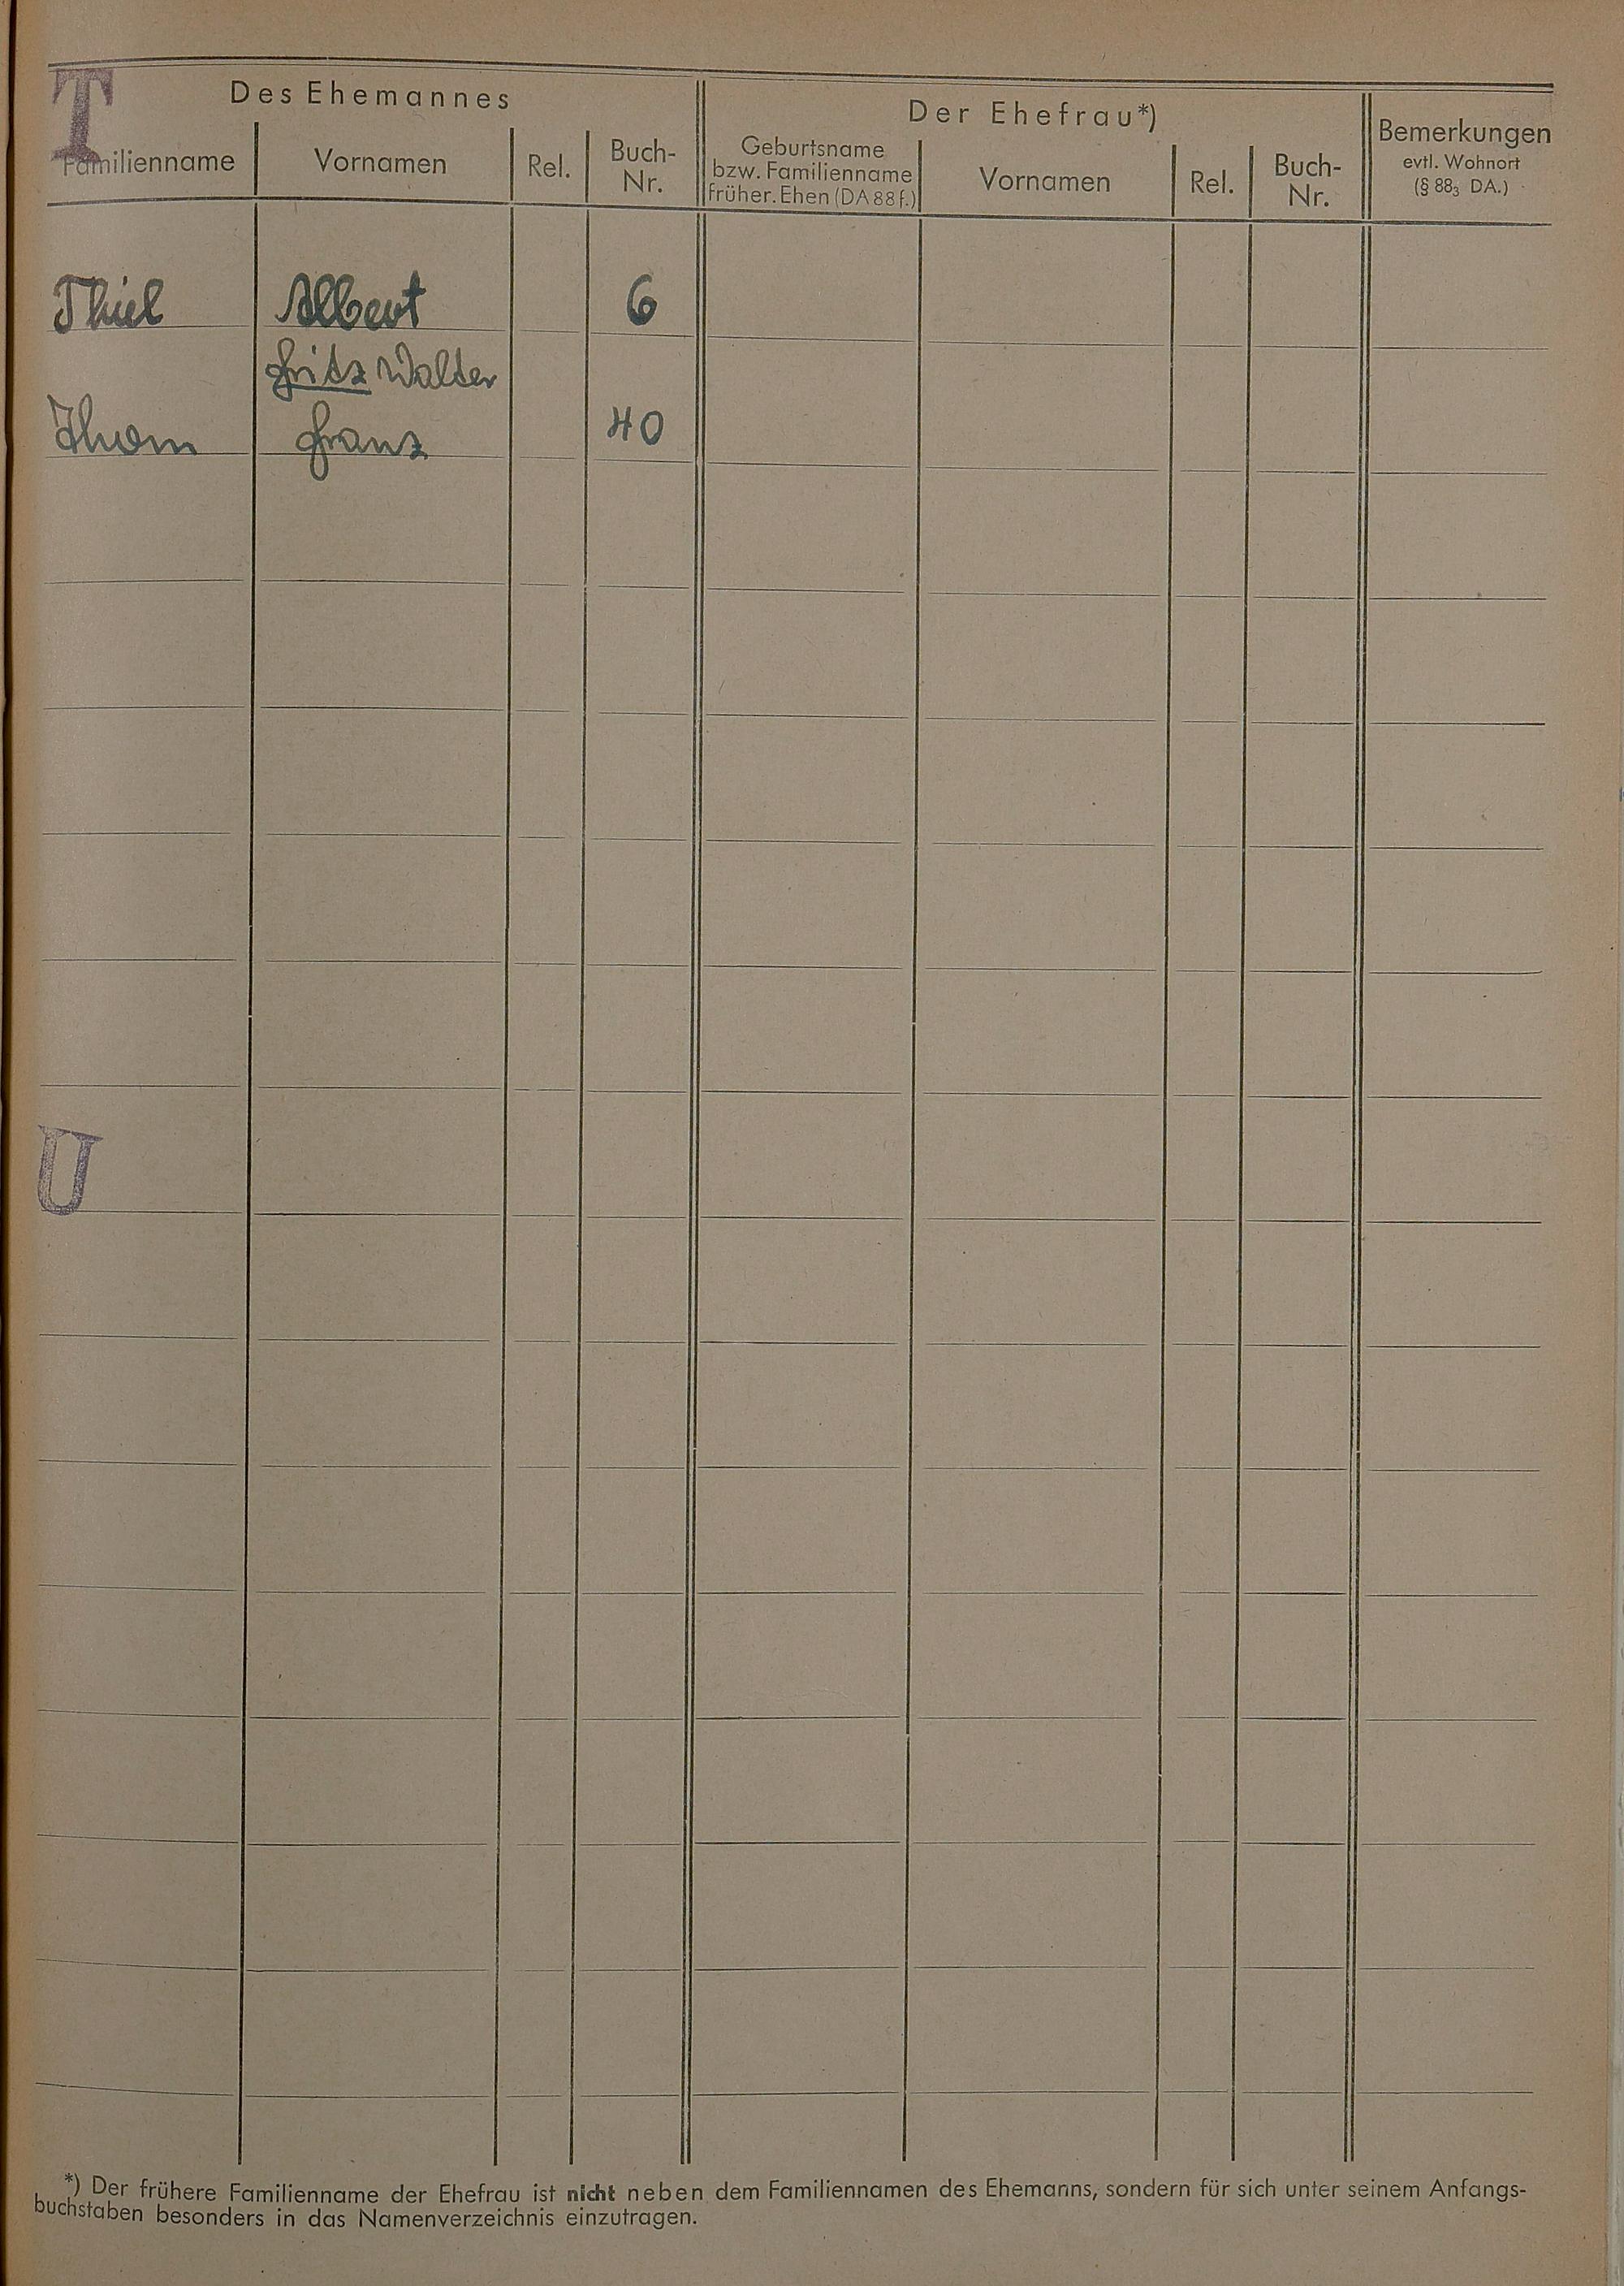 T
Des Ehemannes
Der Ehefrau*)
Familienname
Vornamen
Rel.
Buch-
Nr.
Geburtsname
bzw. Familienname
früher. Ehen (DA 88 f.)
Vornamen
Rel.
Buch-
Nr.
Bemerkungen
evtl. Wohnort
(§ 88₃ DA.)
Thiel Albert 6
Fritz Walter
Thom Franz 40
U
*) Der frühere Familienname der Ehefrau ist nicht neben dem Familiennamen des Ehemanns, sondern für sich unter seinem Anfangs-
buchstaben besonders in das Namenverzeichnis einzutragen.